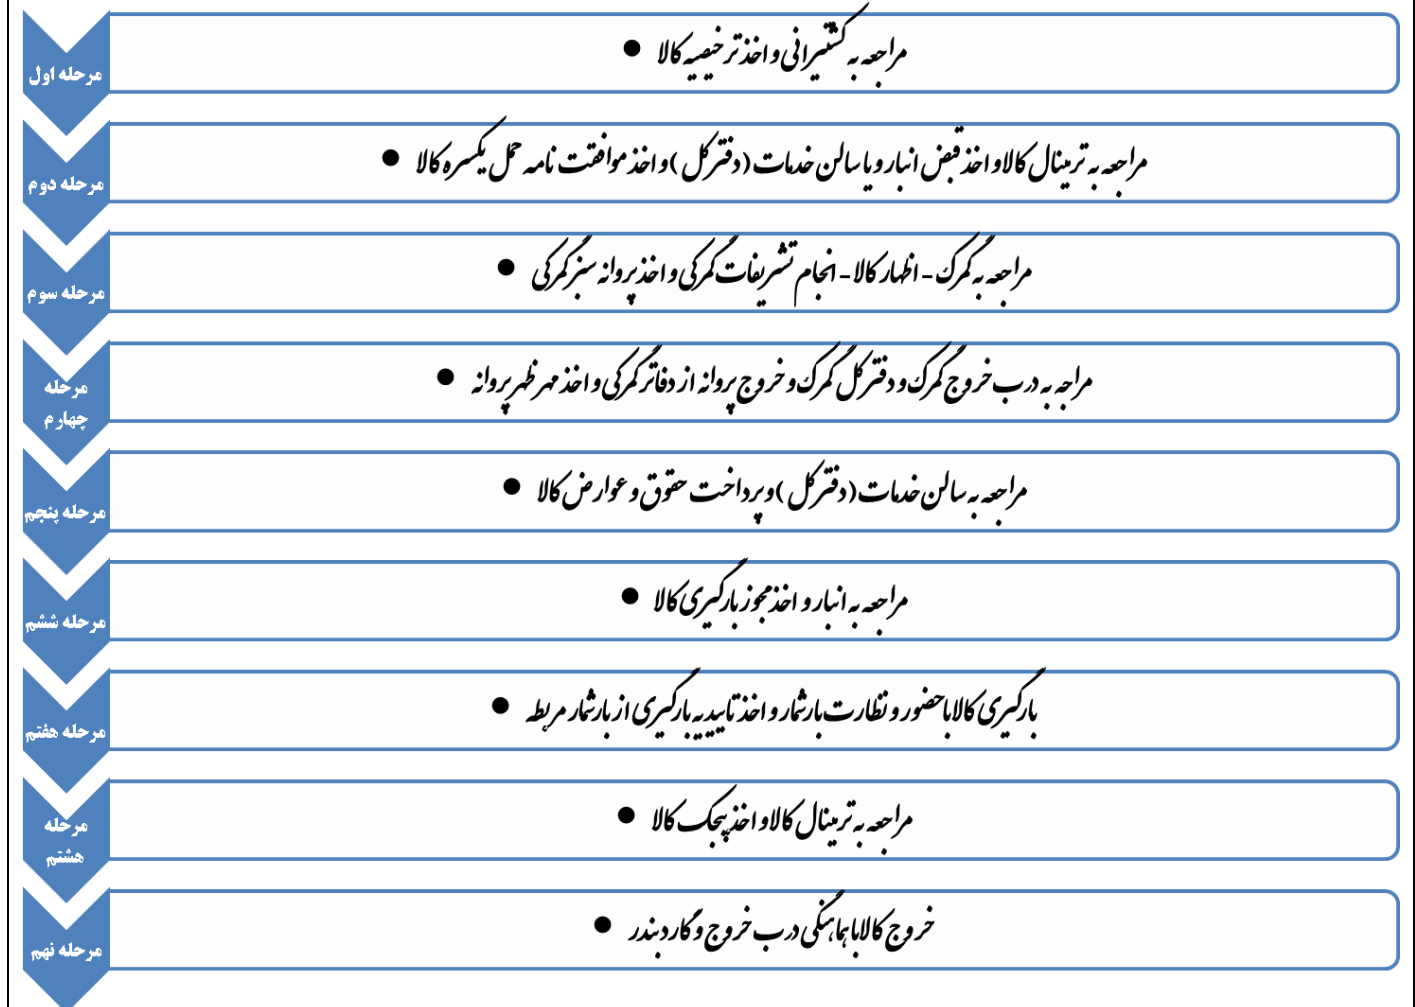 مرحله اول
مراجعه به کشتیرانی و اخذ ترخیصیه کالا ●
مرحله دوم
مراجعه به ترمینال کالا و اخذ قبض انبار و یا سالن خدمات (دفتر کل) و اخذ موافقت نامه حمل یکسره کالا ●
مرحله سوم
مراجعه به گمرک - اظهار کالا - انجام تشریفات گمرکی و اخذ پروانه سبز گمرکی ●
مرحله
چهارم
مراجه به درب خروج گمرک و دفتر کل گمرک و خروج پروانه از دفاتر گمرکی و اخذ مهر ظهر پروانه ●
مرحله پنجم
مراجعه به سالن خدمات (دفتر کل) و پرداخت حقوق و عوارض کالا ●
مرحله ششم
مراجعه به انبار و اخذ مجوز بارگیری کالا ●
مرحله هفتم
بارگیری کالا با حضور و نظارت بارشمار و اخذ تاییدیه بارگیری از بارشمار مربطه ●
مرحله
هشتم
مراجعه به ترمینال کالا و اخذ بیجک کالا ●
مرحله نهم
خروج کالا با هماهنگی درب خروج و گارد بندر ●